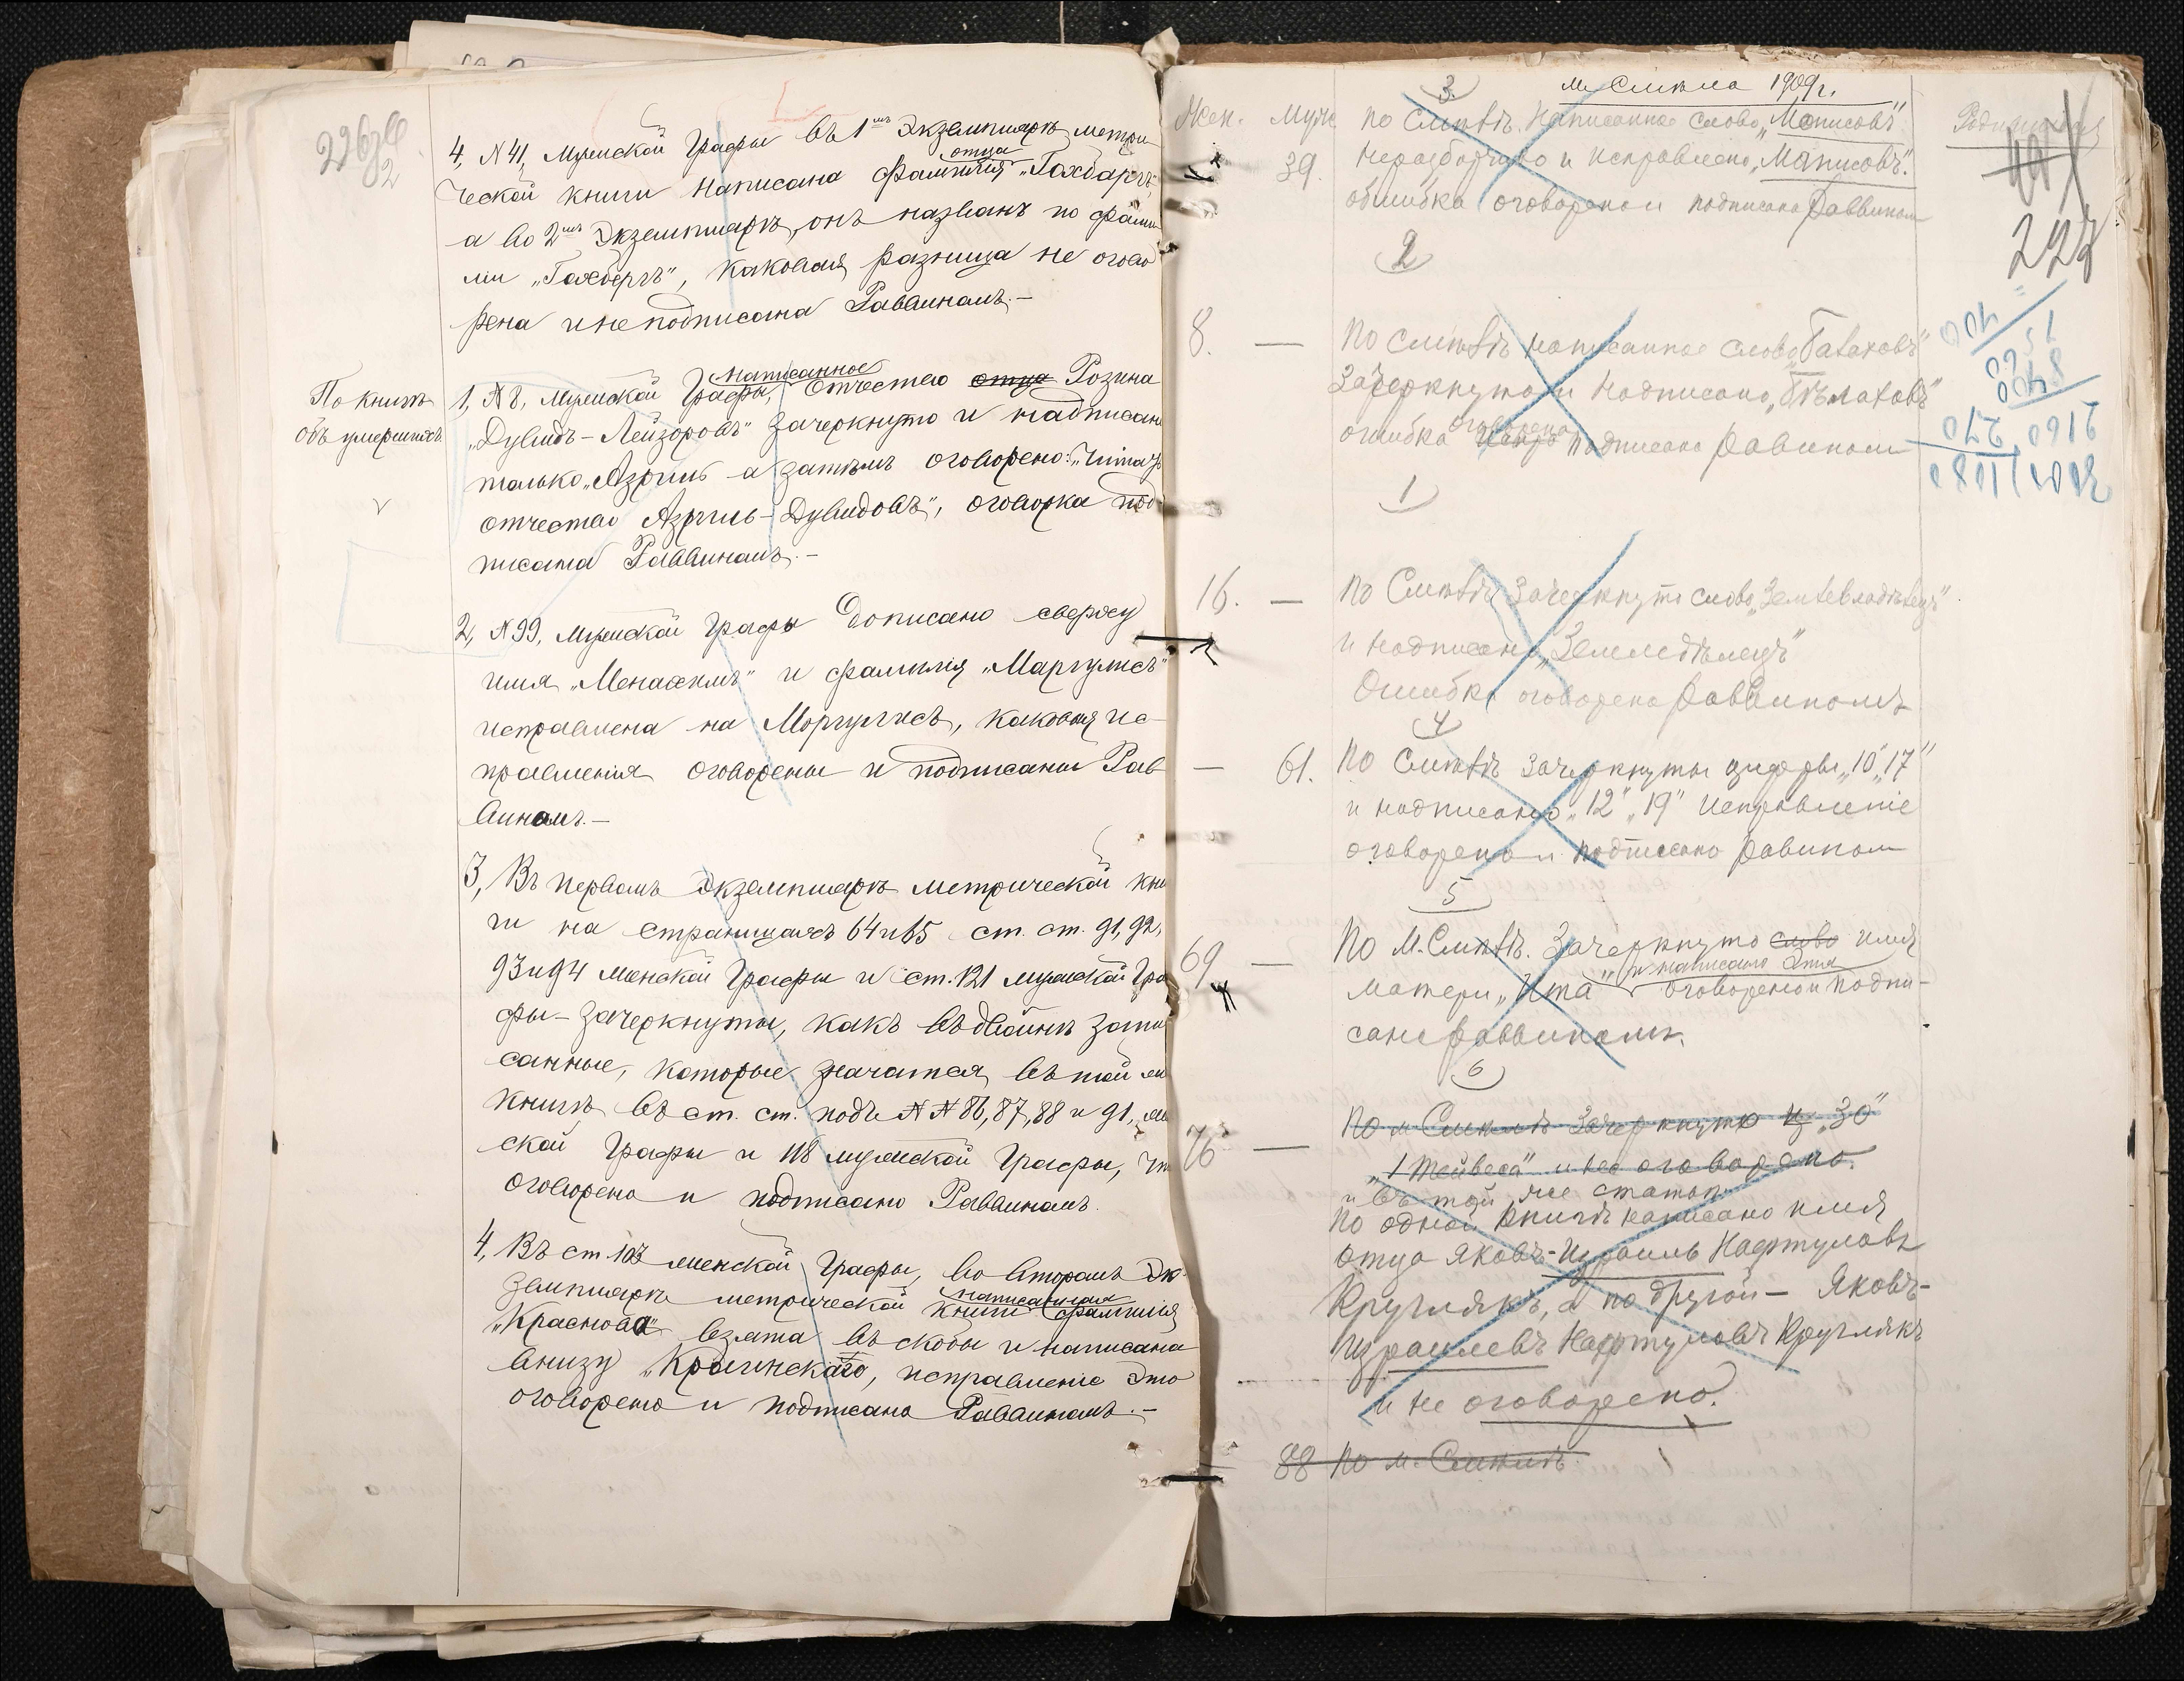 4, N 41, Мужской Графы въ 1мъ Экземпляръ метри
отца
ческой книги написана фамилія „Гохбаргъ“
а во 2мъ Экземпляръ, онъ названъ по фами
ліи „Гохбергъ“, каковая разница не огово
рена и неподписана Раввиномъ.—
По книгѣ
объ умершихъ
написанное
1, N 8, Мужской Графы, Отчество отца Розина
„Дувидъ-Лейзоровъ“ зачеркнуто и надписано
только „Азриль а затѣмъ оговорено: „Читать
отчество Азриль-Дувидовъ“, оговорка под
писана Раввиномъ.—
2, N 99, Мужской Графы Дописано сверху
имя „Менахимъ“ и фамилія „Маргулисъ“
исправлена на Моргулисъ, каковыя ис-
правленія оговорены и подписаны Рав
виномъ.—
3, Въ первомъ Экземпляръ метрической кни
ги на страницахъ 64 и 65 ст. ст. 91, 92,
93 и 94 женской Графы и ст. 121 мужской Гра
фы - зачеркнуты, какъ въдвойнѣ запи
санные, которые значатся въ той же
книгѣ въ ст. ст. подъ N N 86, 87, 88 и 91, же
ской Графы и 118 мужской Графы, что
оговорено и подписано Раввиномъ.
4, Въ ст. 103 женской Графы, во второмъ Эк-
написанная
земпляръ метрической книги фамилія
„Краснова“ взята въ скобы и написана
внизу „Кролинскаго, исправленіе это
оговорено и подписано Раввиномъ.—
м. Смѣла 1909 г.
Жен. Муж.
3.
39. по Смѣлѣ. Написанное слово „Монисовъ“
неразборчиво и исправлено „Манисовъ“.
ошибка оговорена и подписана Раввином
227
2
8. — По Смѣлѣ написанное слово
Зачеркнуто и надписано
оговорена
ошибка подписано Равином
1
16. — по Смѣлѣ Зачеркнуто слово „Землевладѣлецъ“
и надписано „Земледѣлецъ“
Ошибка оговорена Раввиномъ
4
— 61. По Смѣлѣ зачеркнуты цифры „10“ „17“
и надписано „12“ „19“ исправленіе
оговорено и подписано Равином
5
69 — По М. Смѣлѣ. Зачеркнуто слово имя
и написано Этя
матери „Ита“ оговорено и подпи-
сано Раввиномъ.
6
76 — по м. Смѣлѣ зачеркнуто „30“
„1 Тейвеса“ и не оговорено.
и въ той же статьѣ
по одной книгѣ написано имя
отца Яковъ-Израиль Нафтуловъ
Круглякъ, а по другой — Яковъ-
Израилевъ Нафтуловъ Круглякъ
и не оговорено.
88 По м. Смѣлѣ